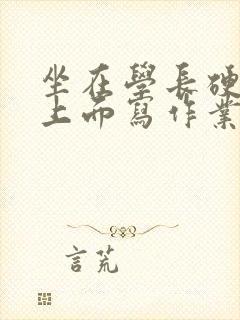 坐在學長硬
上面寫作業
言荒